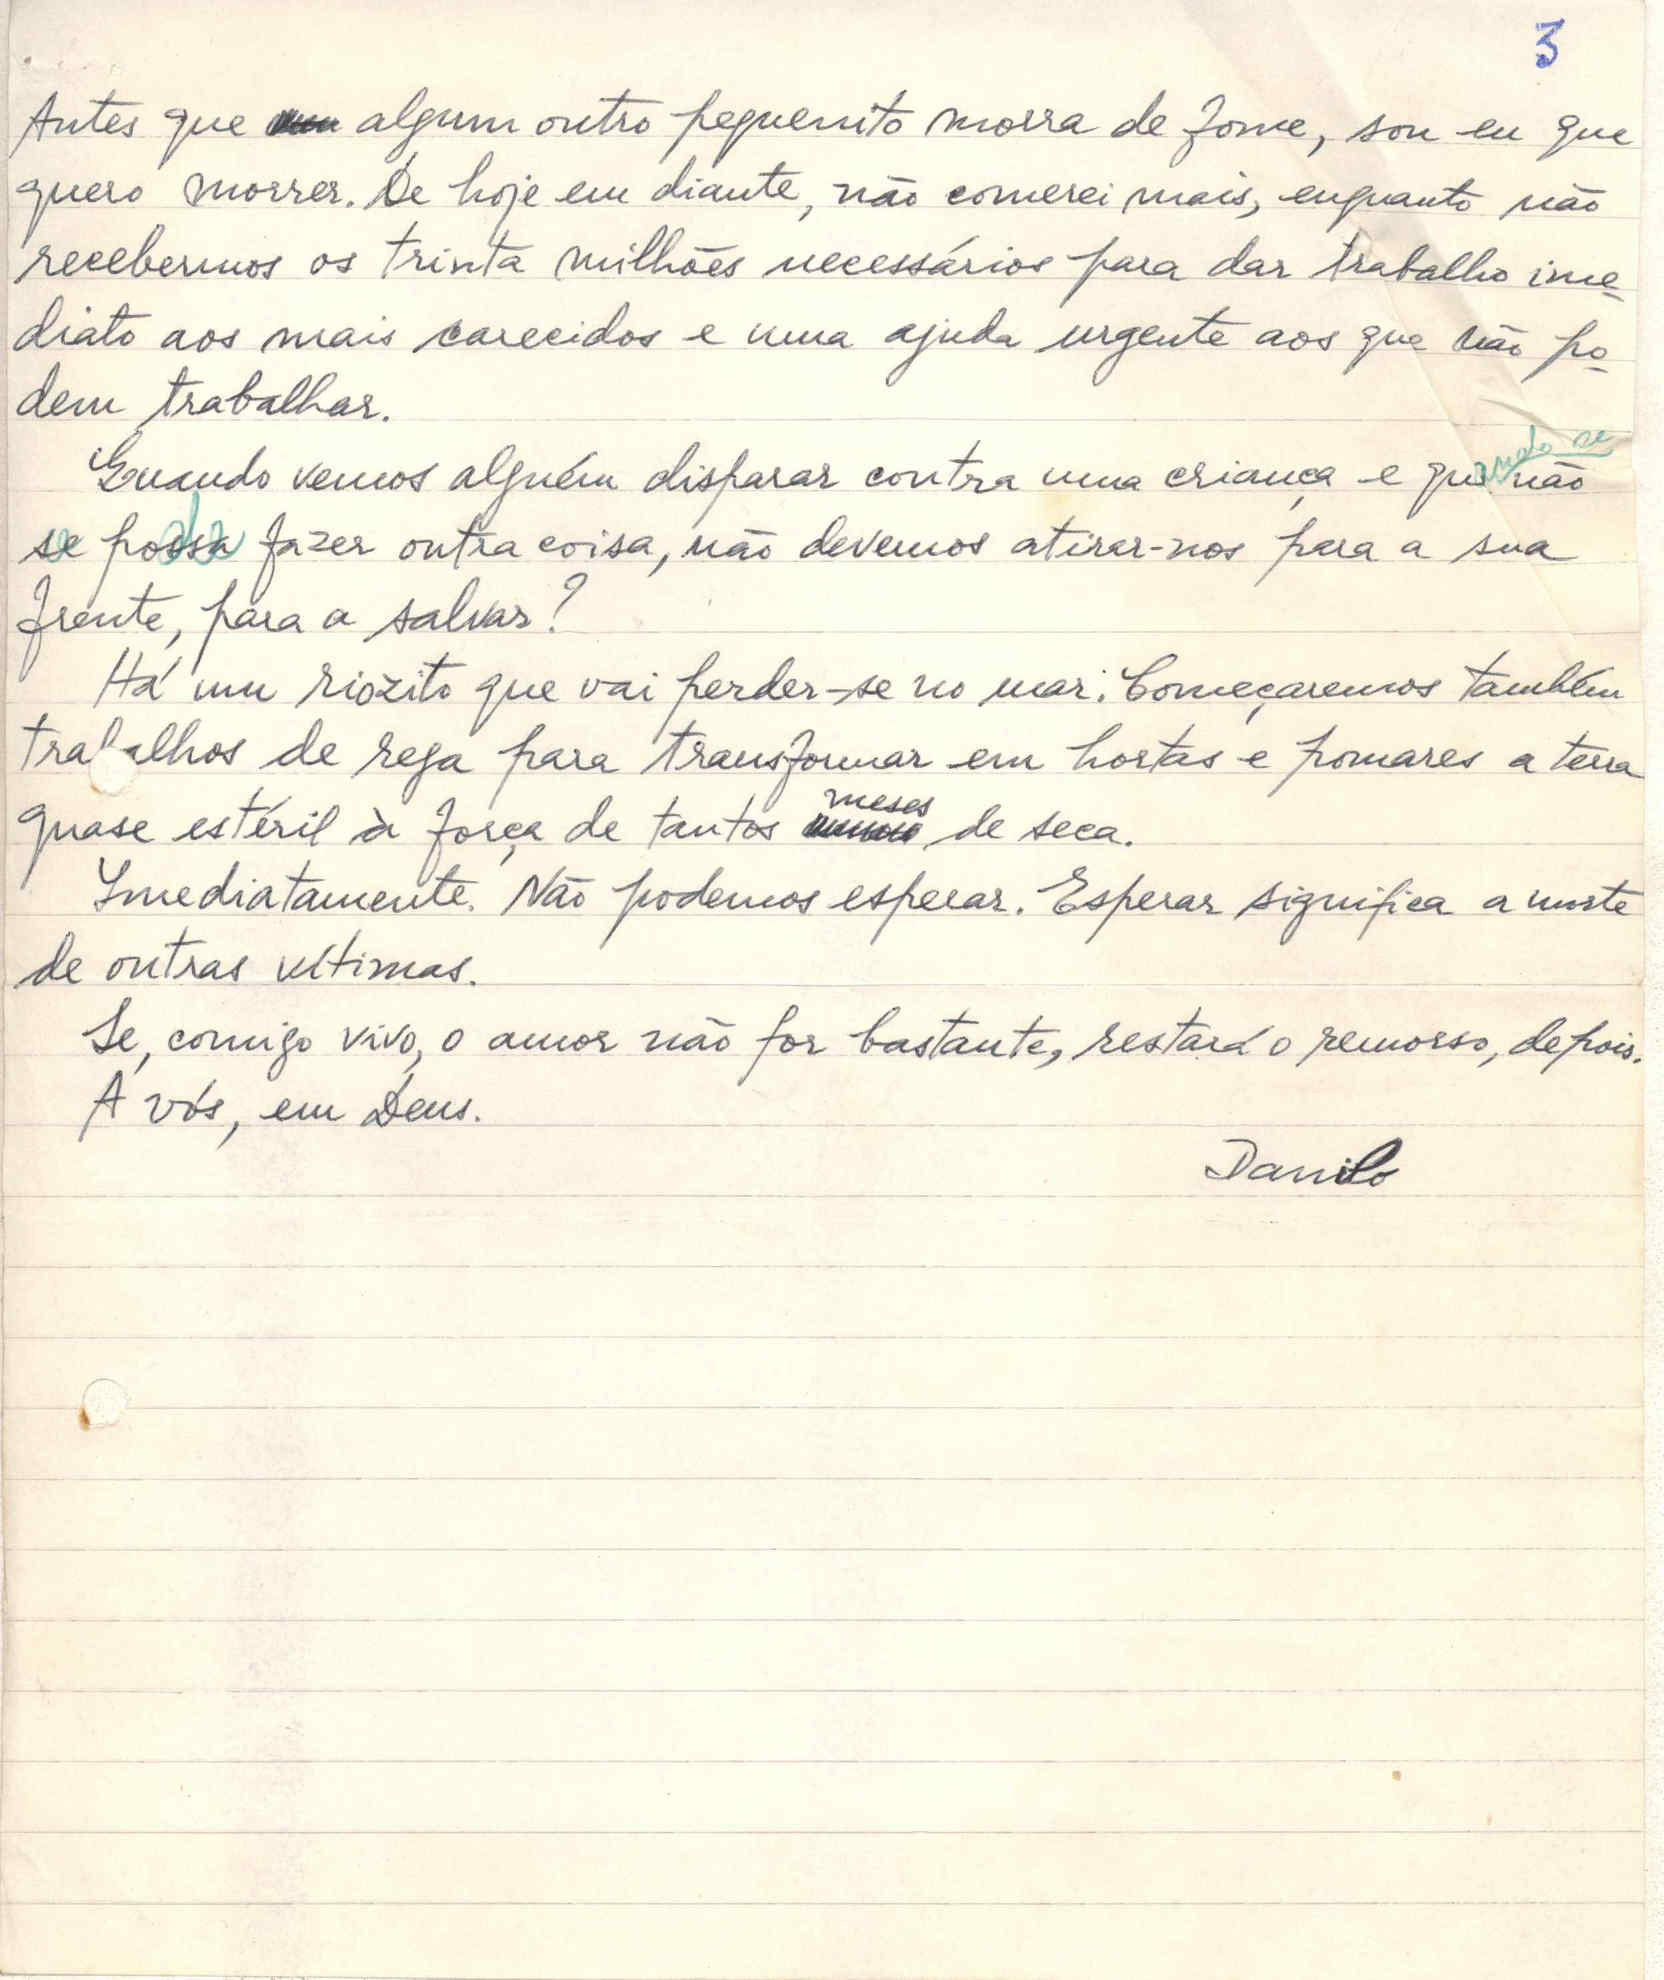 3
Antes que algum outro pequenito morra de fome, sou eu que
quero morrer. De hoje em diante, não comerei mais, enquanto não
recebermos os trinta milhões necessários para dar trabalho ime-
diato aos mais carecidos e uma ajuda urgente aos que não po-
dem trabalhar.
Quando vemos alguém disparar contra uma criança e quando se não
se possa fazer outra coisa, não devemos atirar-nos para a sua
frente, para a salvar?
Há um riozito que vai perder-se no mar. Começaremos também
trabalhos de rega para transformar em hortas e pomares a terra
quase estéril à força de tantos meses de seca.
Imediatamente. Não podemos esperar. Esperar significa a morte
de outras vítimas.
Se, comigo vivo, o amor não for bastante, restará o remorso, depois.
A vós, em Deus.
Danilo